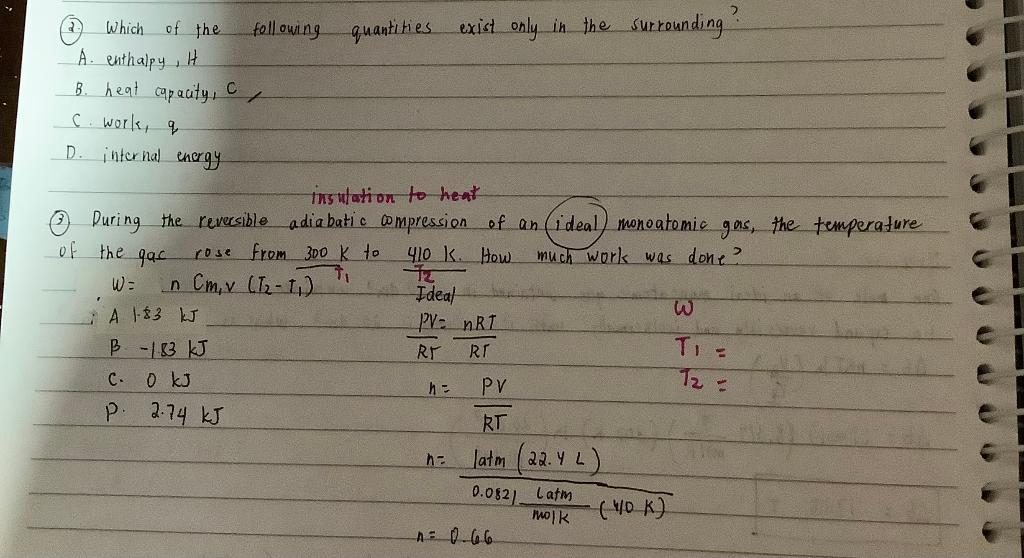 ② Which of the following quantities exist only in the surrounding?
A. enthalpy, H
B. heat capacity, C
C. work, q
D. internal energy
insulation to heat
③ During the reversible adiabatic compression of an ideal monoatomic gas, the temperature
of the gas rose from 300 K to 410 K. How much work was done?
T1 T2
W = n Cm,v (T2 - T1)
Ideal
A 1.83 kJ
PV = nRT
W
B -183 kJ
RT RT
T1 =
C. 0 kJ
n = PV
T2 =
D. 2.74 kJ
RT
n = 1atm (22.4 L)
0.0821 Latm (410 K)
molk
n = 0.66